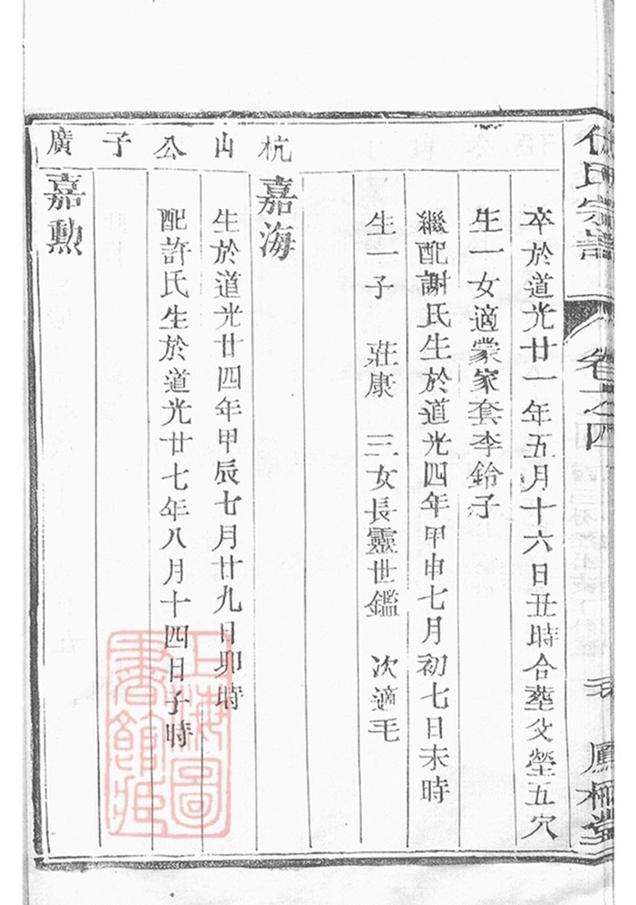 氏宗譜 卷之四
卒於道光廿一年五月十六日丑時合葬父塋五穴
生一女適蒙家套李鈴子
繼配謝氏生於道光四年甲申七月初七日未時
生一子 莊康 三女長靈世鑑 次適毛
杭山公子廣
嘉海
生於道光廿四年甲辰七月廿九日卯時
配許氏生於道光廿七年八月十四日子時
嘉勲
上海圖書館藏